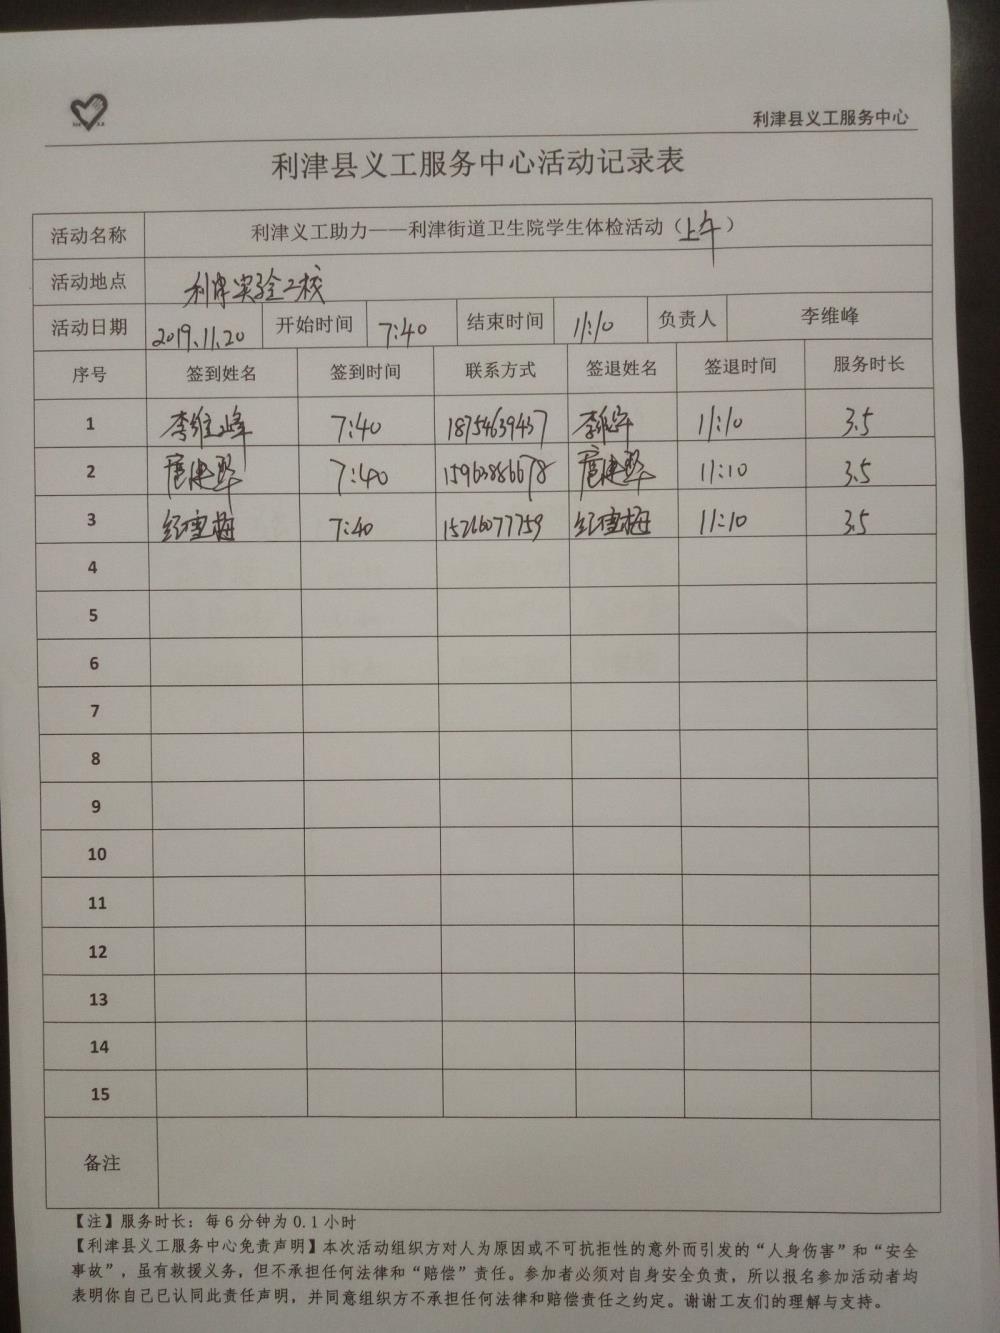 利津县义工服务中心
利津县义工服务中心活动记录表
活动名称 利津义工助力——利津街道卫生院学生体检活动（上午）
活动地点 利津实验二校
活动日期 2019.11.20 开始时间 7:40 结束时间 11:10 负责人 李维峰
序号 签到姓名 签到时间 联系方式 签退姓名 签退时间 服务时长
1 李维峰 7:40 18754639437 李维峰 11:10 3.5
2 7:40 15963886678 11:10 3.5
3 纪雪梅 7:40 15266077759 纪雪梅 11:10 3.5
4
5
6
7
8
9
10
11
12
13
14
15
备注
【注】服务时长：每6分钟为0.1小时
【利津县义工服务中心免责声明】本次活动组织方对人为原因或不可抗拒性的意外而引发的“人身伤害”和“安全
事故”，虽有救援义务，但不承担任何法律和“赔偿”责任。参加者必须对自身安全负责，所以报名参加活动者均
表明你自己已认同此责任声明，并同意组织方不承担任何法律和赔偿责任之约定。谢谢工友们的理解与支持。